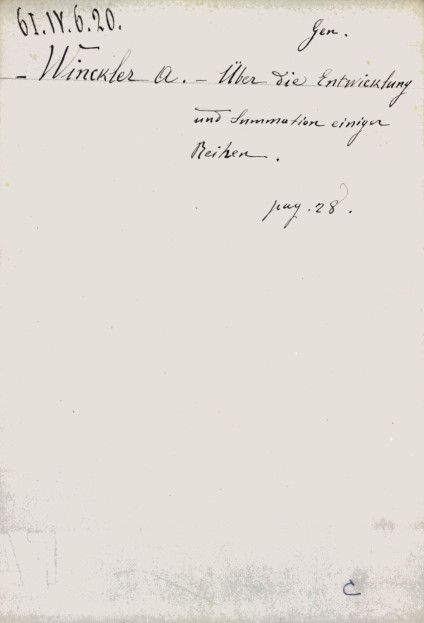 61.IV.6.20.
Gen.
- Winckler A. - Über die Entwicklung
und Summation einiger
Reihen.
pag. 28.
C